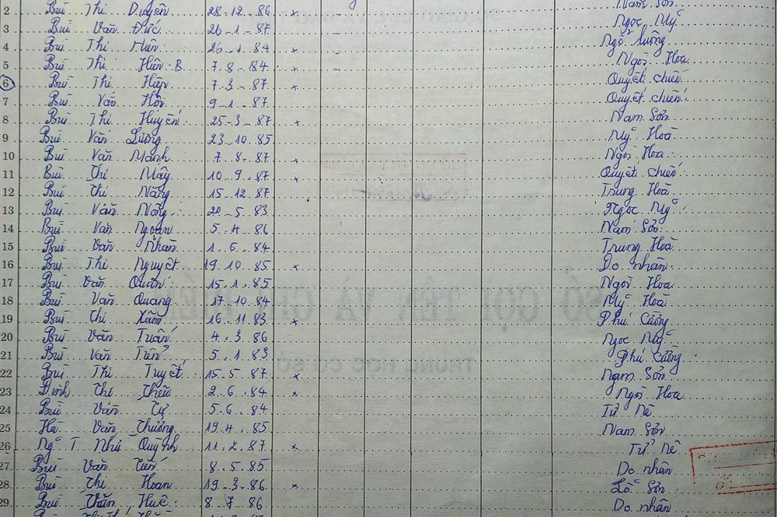 2 Bùi Thị Duyên 28.12.86 x – Nam Sơn
3 Bùi Văn Đức 26.1.87 – Ngọc Mỹ
4 Bùi Thị Hiên 26.1.84 x – Ngổ Luông
5 Bùi Thị Hiên B 7.8.84 x – Ngòi Hoa
6 Bùi Thị Hiệp 7.3.87 x Quyết chiến
7 Bùi Văn Hôn 9.1.87 Quyết chiến
8 Bùi Thị Huyến 25.3.87 x Nam Sơn
9 Bùi Văn Lương 23.10.85 Mỹ Hoà
10 Bùi Văn Mạnh 7.8.87 x Ngòi Hoa
11 Bùi Thị Mây 10.9.87 x Quyết chiến
12 Bùi Thị Năng 15.12.87 Trung Hoà
13 Bùi Văn Nông 20.5.83 Ngọc Mỹ
14 Bùi Văn Ngoan 5.4.86 Nam Sơn
15 Bùi Văn Nhân 1.6.84 Trung Hoà
16 Bùi Thị Nguyệt 19.10.85 x Do nhân
17 Bùi Văn Quân 15.1.85 Ngòi Hoa
18 Bùi Văn Quang 17.10.84 Mỹ Hoà
19 Bùi Thị 16.11.83 x Phú Cường
20 Bùi Văn Tuấn 4.3.86 Ngọc Mỹ
21 Bùi Văn Tiến 5.1.83 Phú Cường
22 Bùi Thị Tuyết 15.5.87 x Nam Sơn
23 Đinh Thị 2.6.84 x Ngòi Hoa
24 Bùi Văn Tự 5.6.84 Tử Nê
25 Hà Văn Thưởng 19.4.85 Nam Sơn
26 Ng T Như Quỳnh 11.2.87 x Tử Nê
27 Bùi Văn 8.5.85 Do nhân
28 Bùi Thị Hoan 19.3.86 x Lỗ Sơn
29 Bùi Huê 8.7.86 Do nhân